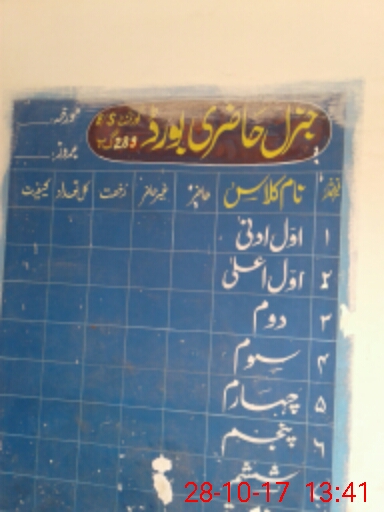 جنرل حاضری بورڈ
289 گ ب
مورخہ
بروز
نمبرشمار نام کلاس حاضر غیرحاضر رخصت کل تعداد کیفیت
۱ اول ادنیٰ
۲ اول اعلیٰ
۳ دوم
۴ سوم
۵ چہارم
۶ پنجم
ششم
28-10-17 13:41